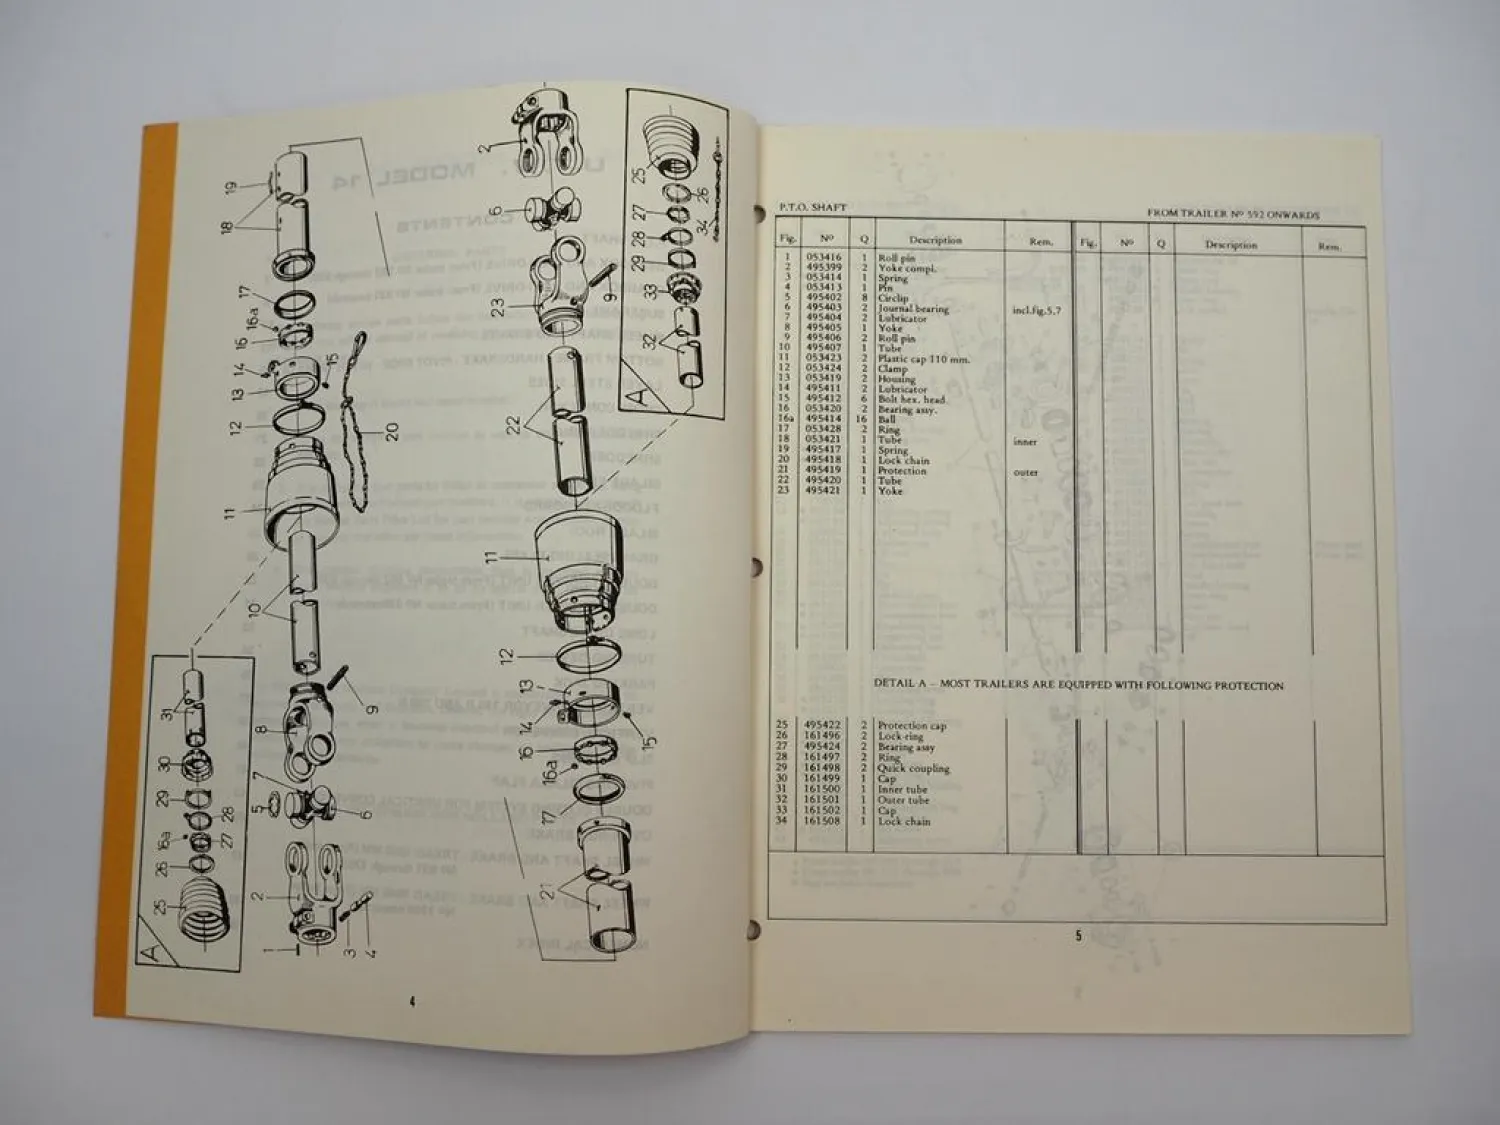 4
P.T.O. SHAFT FROM TRAILER Nº 592 ONWARDS
Fig. Nº Q Description Rem. Fig. Nº Q Description Rem.
1 053416 1 Roll pin
2 495399 2 Yoke compl.
3 053414 1 Spring
4 053413 1 Pin
5 495402 8 Circlip
6 495403 2 Journal bearing incl.fig.5.7
7 495404 2 Lubricator
8 495405 1 Yoke
9 495406 2 Roll pin
10 495407 1 Tube
11 053423 2 Plastic cap 110 mm.
12 053424 2 Clamp
13 053419 2 Housing
14 495411 2 Lubricator
15 495412 6 Bolt hex. head.
16 053420 2 Bearing assy.
16a 495414 16 Ball
17 053428 2 Ring
18 053421 1 Tube inner
19 495417 1 Spring
20 495418 1 Lock chain
21 495419 1 Protection outer
22 495420 1 Tube
23 495421 1 Yoke
DETAIL A - MOST TRAILERS ARE EQUIPPED WITH FOLLOWING PROTECTION
25 495422 2 Protection cap
26 161496 2 Lock-ring
27 495424 2 Bearing assy
28 161497 2 Ring
29 161498 2 Quick coupling
30 161499 1 Cap
31 161500 1 Inner tube
32 161501 1 Outer tube
33 161502 1 Cap
34 161508 1 Lock chain
5
19
18
17
16a
16
15
14
13
12
20
11
10
9
8
7
5
6
2
1
3
4
A
31
30
29
28
16a
27
26
25
2
6
23
9
22
11
12
13
14
15
16
16a
17
21
A
25
26
27
34
28
29
33
32